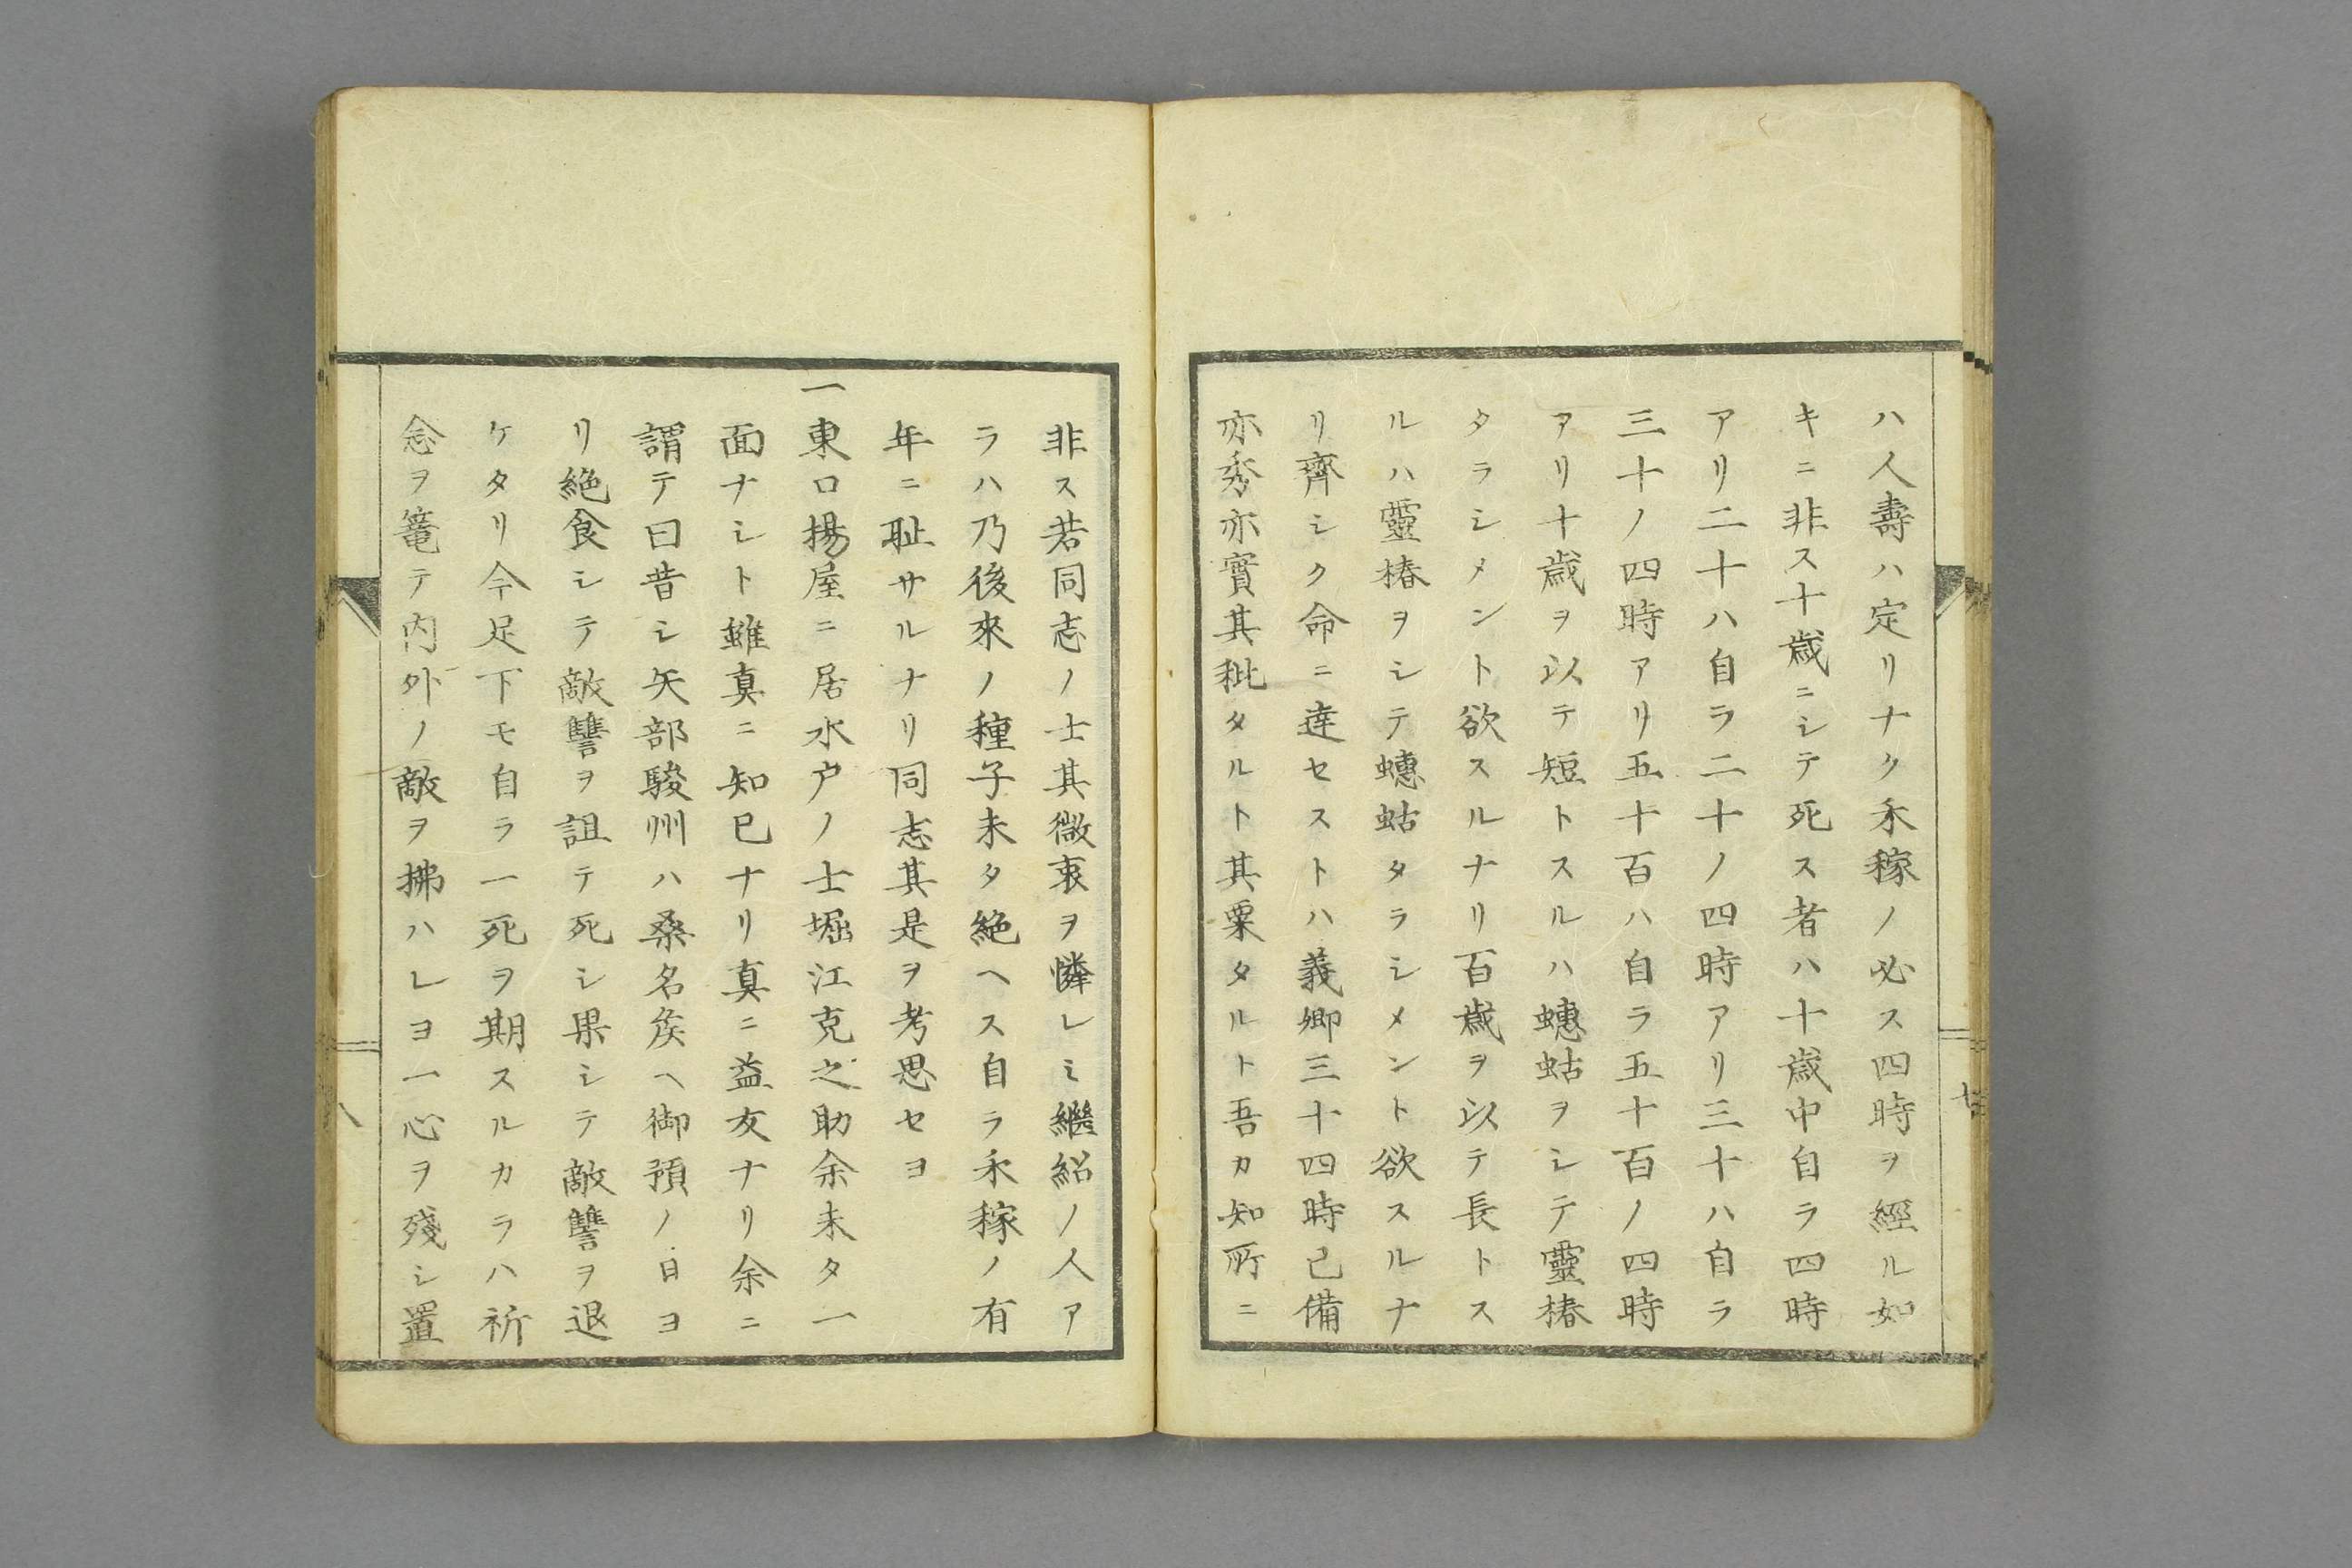 ハ人壽ハ定リナク禾稼ノ必ス四時ヲ經ル如
キニ非ス十歳ニシテ死ス者ハ十歳中自ラ四時
アリ二十ハ自ラ二十ノ四時アリ三十ハ自ラ
三十ノ四時アリ五十百ハ自ラ五十百ノ四時
アリ十歳ヲ以テ短トスルハ蟪蛄ヲシテ靈椿
タラシメント欲スルナリ百歳ヲ以テ長トス
ルハ靈椿ヲシテ蟪蛄タラシメント欲スルナ
リ齊シク命ニ達セストハ義卿三十四時已備
亦秀亦實其秕タルト其粟タルト吾カ知所ニ
七
非ス若同志ノ士其微衷ヲ憐レミ繼紹ノ人ア
ラハ乃後來ノ種子未タ絶ヘス自ラ禾稼ノ有
年ニ耻サルナリ同志其是ヲ考思セヨ
一東口揚屋ニ居水户ノ士堀江克之助余未タ一
面ナシト雖真ニ知已ナリ真ニ益友ナリ余ニ
謂テ曰昔シ矢部駿州ハ桑名矦ヘ御預ノ日ヨ
リ絶食シテ敵讐ヲ詛テ死シ果シテ敵讐ヲ退
ケタリ今足下モ自ラ一死ヲ期スルカラハ祈
念ヲ篭テ内外ノ敵ヲ拂ハレヨ一心ヲ殘シ置
八